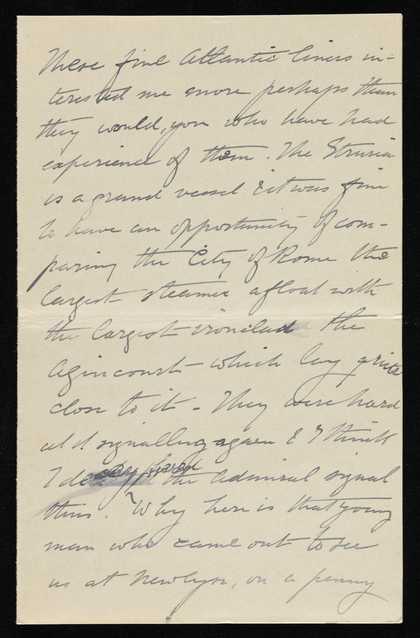 These fine Atlantic liners in-
terested me more perhaps than
they would, you who have had
experience of them. The Etruria
is a grand vessel & it was fine
to have an opportunity of com-
paring the City of Rome the
largest steamer afloat with
the largest ironclad the
Agincourt - which lay quite
close to it - They were hard
at it signalling again & I think
I the Admiral signal
thus. "Why here is that young
man who came out to see
us at Newlyn, on a penny